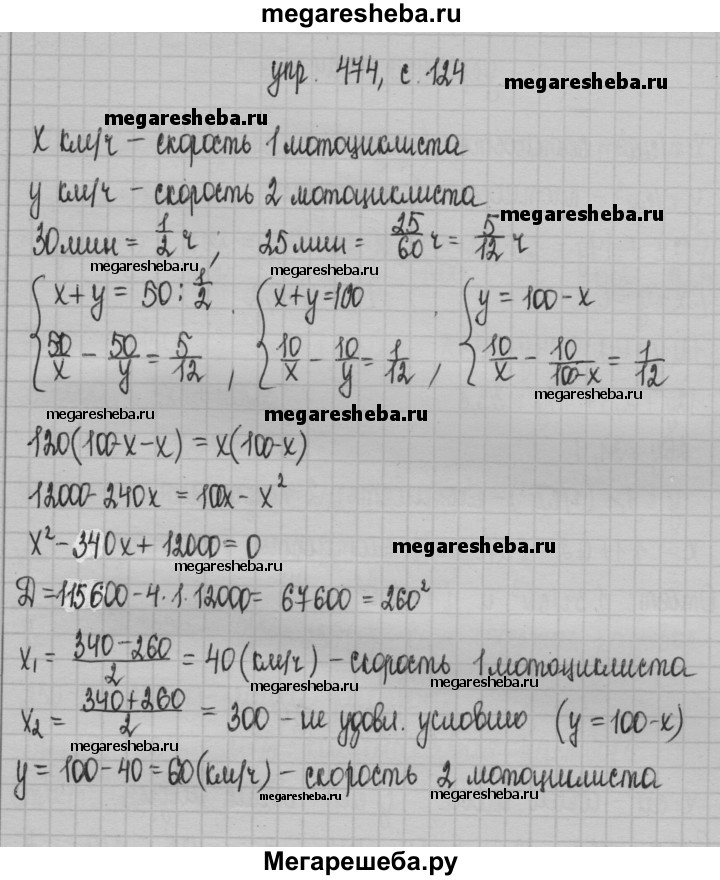 megaresheba.ru
упр. 474, с. 124
megaresheba.ru
megaresheba.ru
x км/ч – скорость 1 мотоциклиста
y км/ч – скорость 2 мотоциклиста
megaresheba.ru
30 мин = 1/2 ч, 25 мин = 25/60 ч = 5/12 ч
megaresheba.ru megaresheba.ru
{ x + y = 50 : 1/2 { x + y = 100 { y = 100 - x
50/x - 50/y = 5/12, 10/x - 10/y = 1/12, 10/x - 10/(100-x) = 1/12
megaresheba.ru
megaresheba.ru megaresheba.ru
120(100-x-x) = x(100-x)
12000 - 240x = 100x - x²
x² - 340x + 12000 = 0
megaresheba.ru
megaresheba.ru
Д = 115600 - 4·1·12000 = 67600 = 260²
x₁ = (340-260)/2 = 40 (км/ч) – скорость 1 мотоциклиста
megaresheba.ru megaresheba.ru
x₂ = (340+260)/2 = 300 – не удовл. условию (y = 100-x)
megaresheba.ru
y = 100 - 40 = 60 (км/ч) – скорость 2 мотоцилиста
megaresheba.ru megaresheba.ru
Мегарешеба.ру